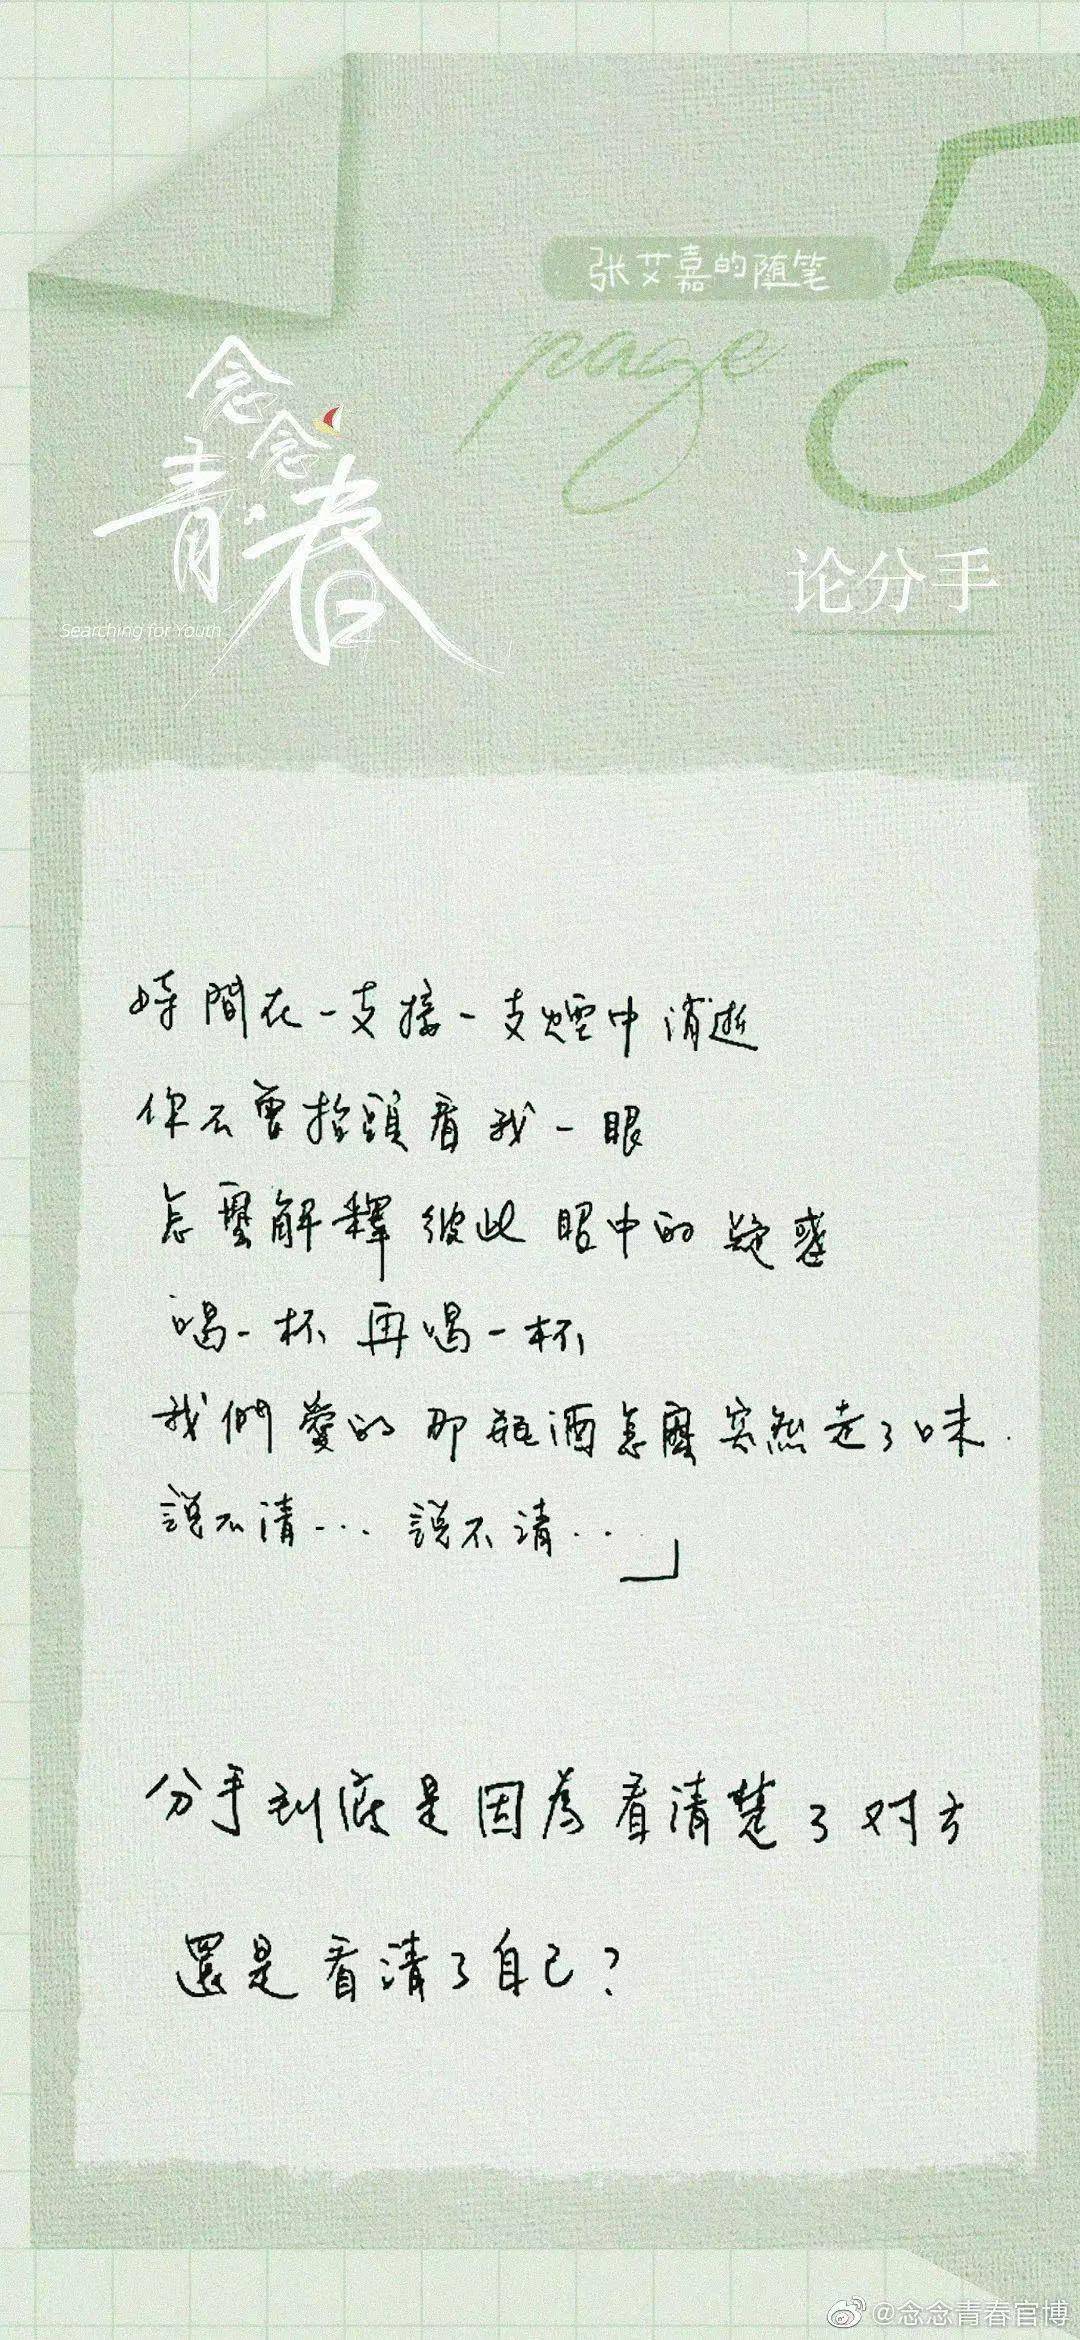 张艾嘉的随笔
page 5
念念
青春
Searching for Youth
论分手
時間在一支接一支煙中消逝
你不曾抬頭看我一眼
怎麼解釋彼此眼中的疑惑
喝一杯 再喝一杯
我們愛的那瓶酒怎麼突然走了味.
說不清... 說不清..」
分手到底是因為看清楚了对方
還是看清了自己?
@念念青春官博